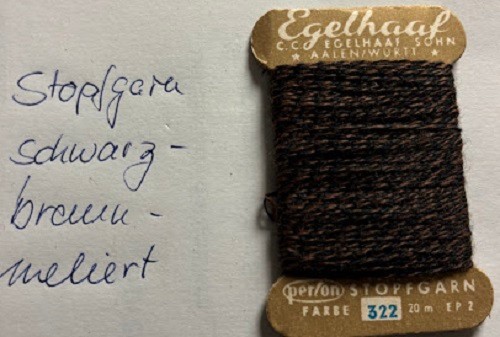 Stopfgarn
schwarz-
braun-
meliert
Egelhaaf
C.C. EGELHAAF SOHN
★ AALEN/WÜRTT. ★
perlon STOPFGARN
FARBE 322 20 m EP 2